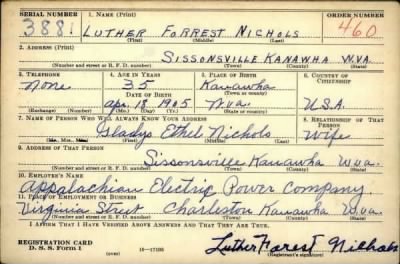 SERIAL NUMBER 1. NAME (Print) ORDER NUMBER
3881 LUTHER FORREST NICHOLS 460
(First) (Middle) (Last)
2. ADDRESS (Print)
SISSONSVILLE KANAWHA W.VA.
(Number and street or R. F. D. number) (Town) (County) (State)
3. TELEPHONE 4. AGE IN YEARS 5. PLACE OF BIRTH 6. COUNTRY OF CITIZENSHIP
None 35 Kanawha
DATE OF BIRTH (Town or county)
Apr. 18, 1905 W.va. U.S.A.
(Exchange) (Number) (Mo.) (Day) (Yr.) (State or country)
7. NAME OF PERSON WHO WILL ALWAYS KNOW YOUR ADDRESS 8. RELATIONSHIP OF THAT PERSON
Gladys Ethel Nichols Wife
(Mr., Mrs., Miss) (First) (Middle) (Last)
9. ADDRESS OF THAT PERSON
Sissonsville Kanawha W.va.
(Number and street or R. F. D. number) (Town) (County) (State)
10. EMPLOYER'S NAME
Appalachian Electric Power Company.
11. PLACE OF EMPLOYMENT OR BUSINESS
Virginia Street Charleston Kanawha W.va.
(Number and street or R. F. D. number) (Town) (County) (State)
I AFFIRM THAT I HAVE VERIFIED ABOVE ANSWERS AND THAT THEY ARE TRUE.
REGISTRATION CARD
D. S. S. FORM 1 (over) 16—17105 Luther Forest Nichols
(Registrant's signature)